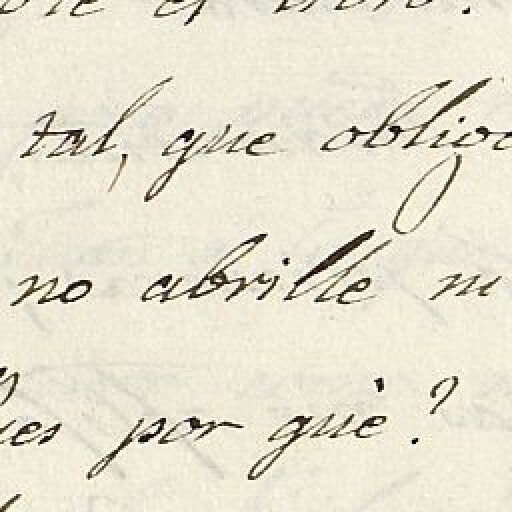 tal, que obliga
no abrille ni
ues por què?